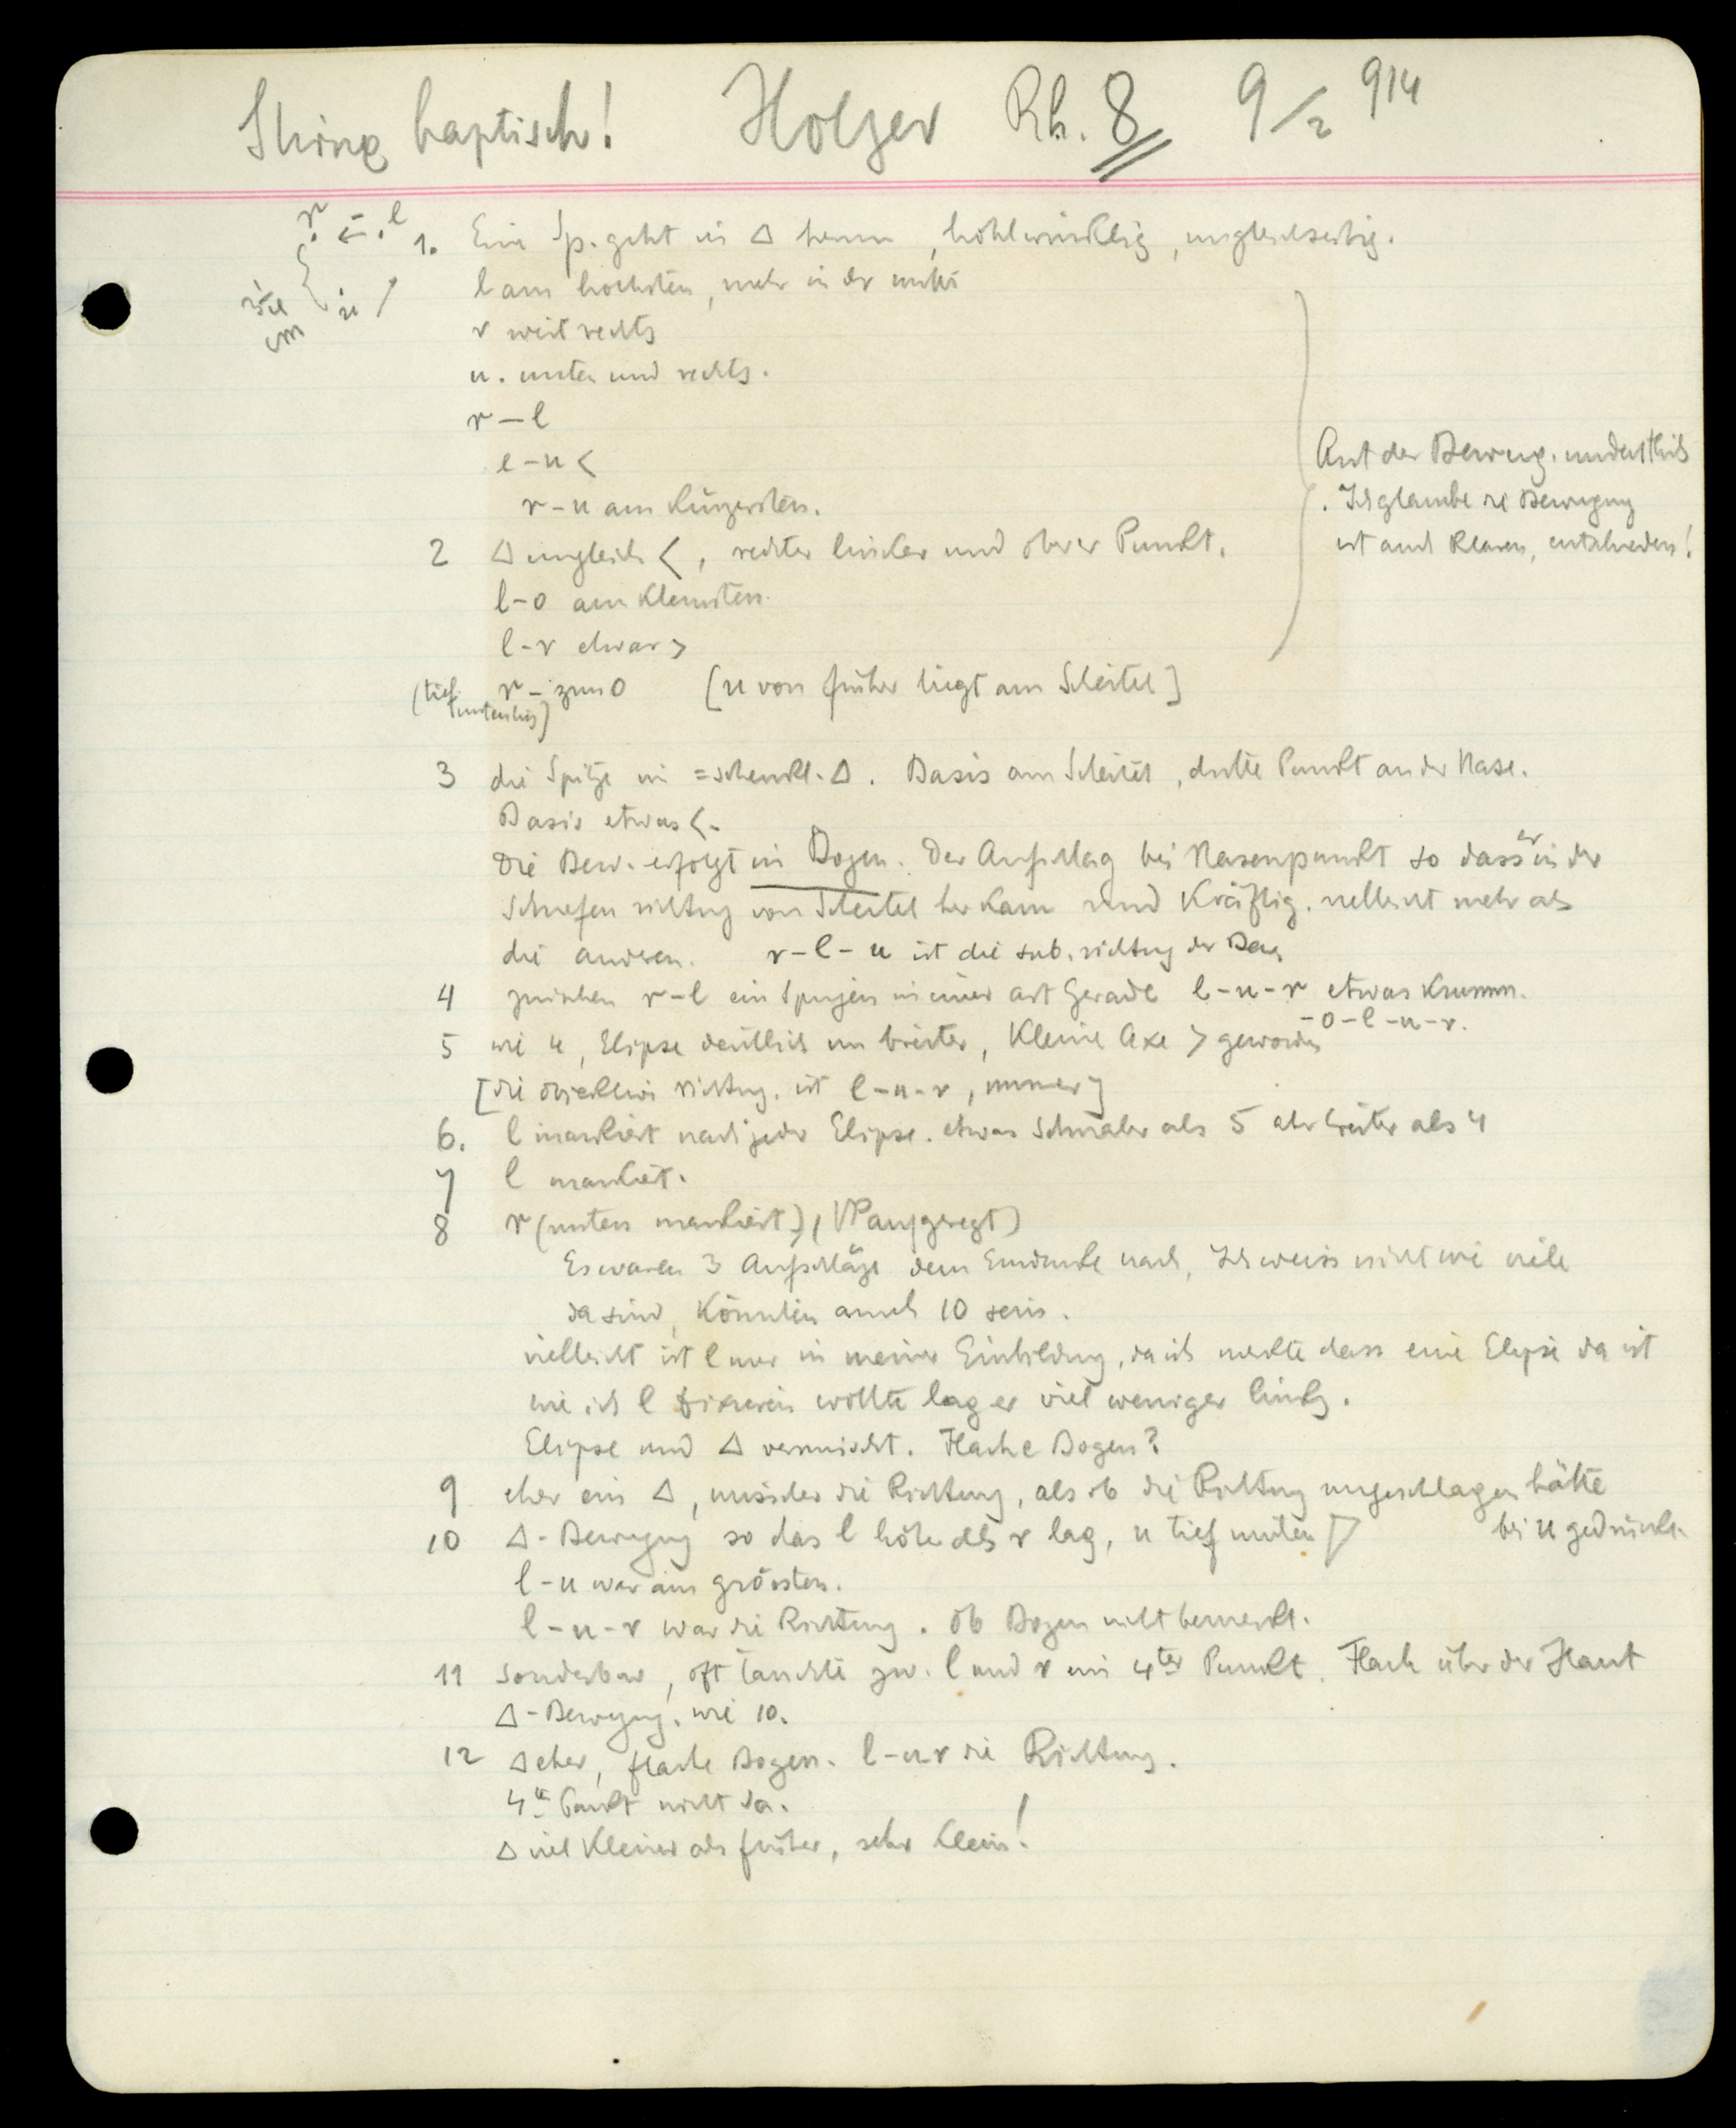 Stirne haptisch! Holzer Rh. 8 9/2 914
r ← . l
u
1. Eine Sp. geht in △ herum, hohlwinklig, ungleichseitig.
l am höchsten, mehr in der mitte
r weit rechts
u. unten und rechts.
r – l
l – u <
r – u am Kürzersten.
Art der Bewegg. undeutlich
. Ich glaube die Bewegung
ist auch klarer, entschieden!
2 △ ungleich <, rechter linker und oberer Punkt.
l – o am Kleinsten.
l – r etwas >
(tief unten hin) r – zum o [u von früher liegt am Scheitel]
3 die Spitze in = schenkl. △. Basis am Scheitel, dritte Punkt an der Nase.
Basis etwas <.
Die Bew. erfolgt in Bogen. Der Aufschlag bei Nasenpunkt so dass er in der
schiefen richtng von Scheitel her kam und Kräftig. vielleicht mehr als
die anderen. r – l – u ist die sub. richtng der Bew.
4 zwischen r – l ein Springen in einer art Gerade l – u – r etwas Krumm.
– o – l – u – r.
5 wie 4, Elipse deutlich nur breiter, Kleine Axe > geworden
[die objektive richtng. ist l – u – r, immer]
6. l markiert nach jeder Elipse. etwas Schmäler als 5 aber breiter als 4
7 l markiert.
8 r (unten markiert), (VP aufgeregt)
Es waren 3 Aufschläge dem Eindrucke nach, Ich weiss nicht wie viele
da sind, Könnten auch 10 sein.
vielleicht ist l nur in meiner Einbildung, da ich merkte dass eine Elipse da ist
wie ich l fixieren wollte lag er viel weniger links.
Elipse und △ vermischt. Flache Bogen?
9 eher ein △, unsicher die Richtung, als ob die Richtung umgeschlagen hätte
bei u gedrückt.
10 △ - Bewegung so das l höher als r lag, u tief unten
l – u war am grössten.
l – u – r war die Richtung. Ob Bogen nicht bemerkt.
11 Sonderbar, oft tauchte zw. l und r ein 4ter Punkt. Flach über der Haut
△ - Bewegng. wie 10.
12 △ eher, flache Bogen. l – u r die Richtung.
4te Punkt nicht da.
△ viel Kleiner als früher, sehr klein!